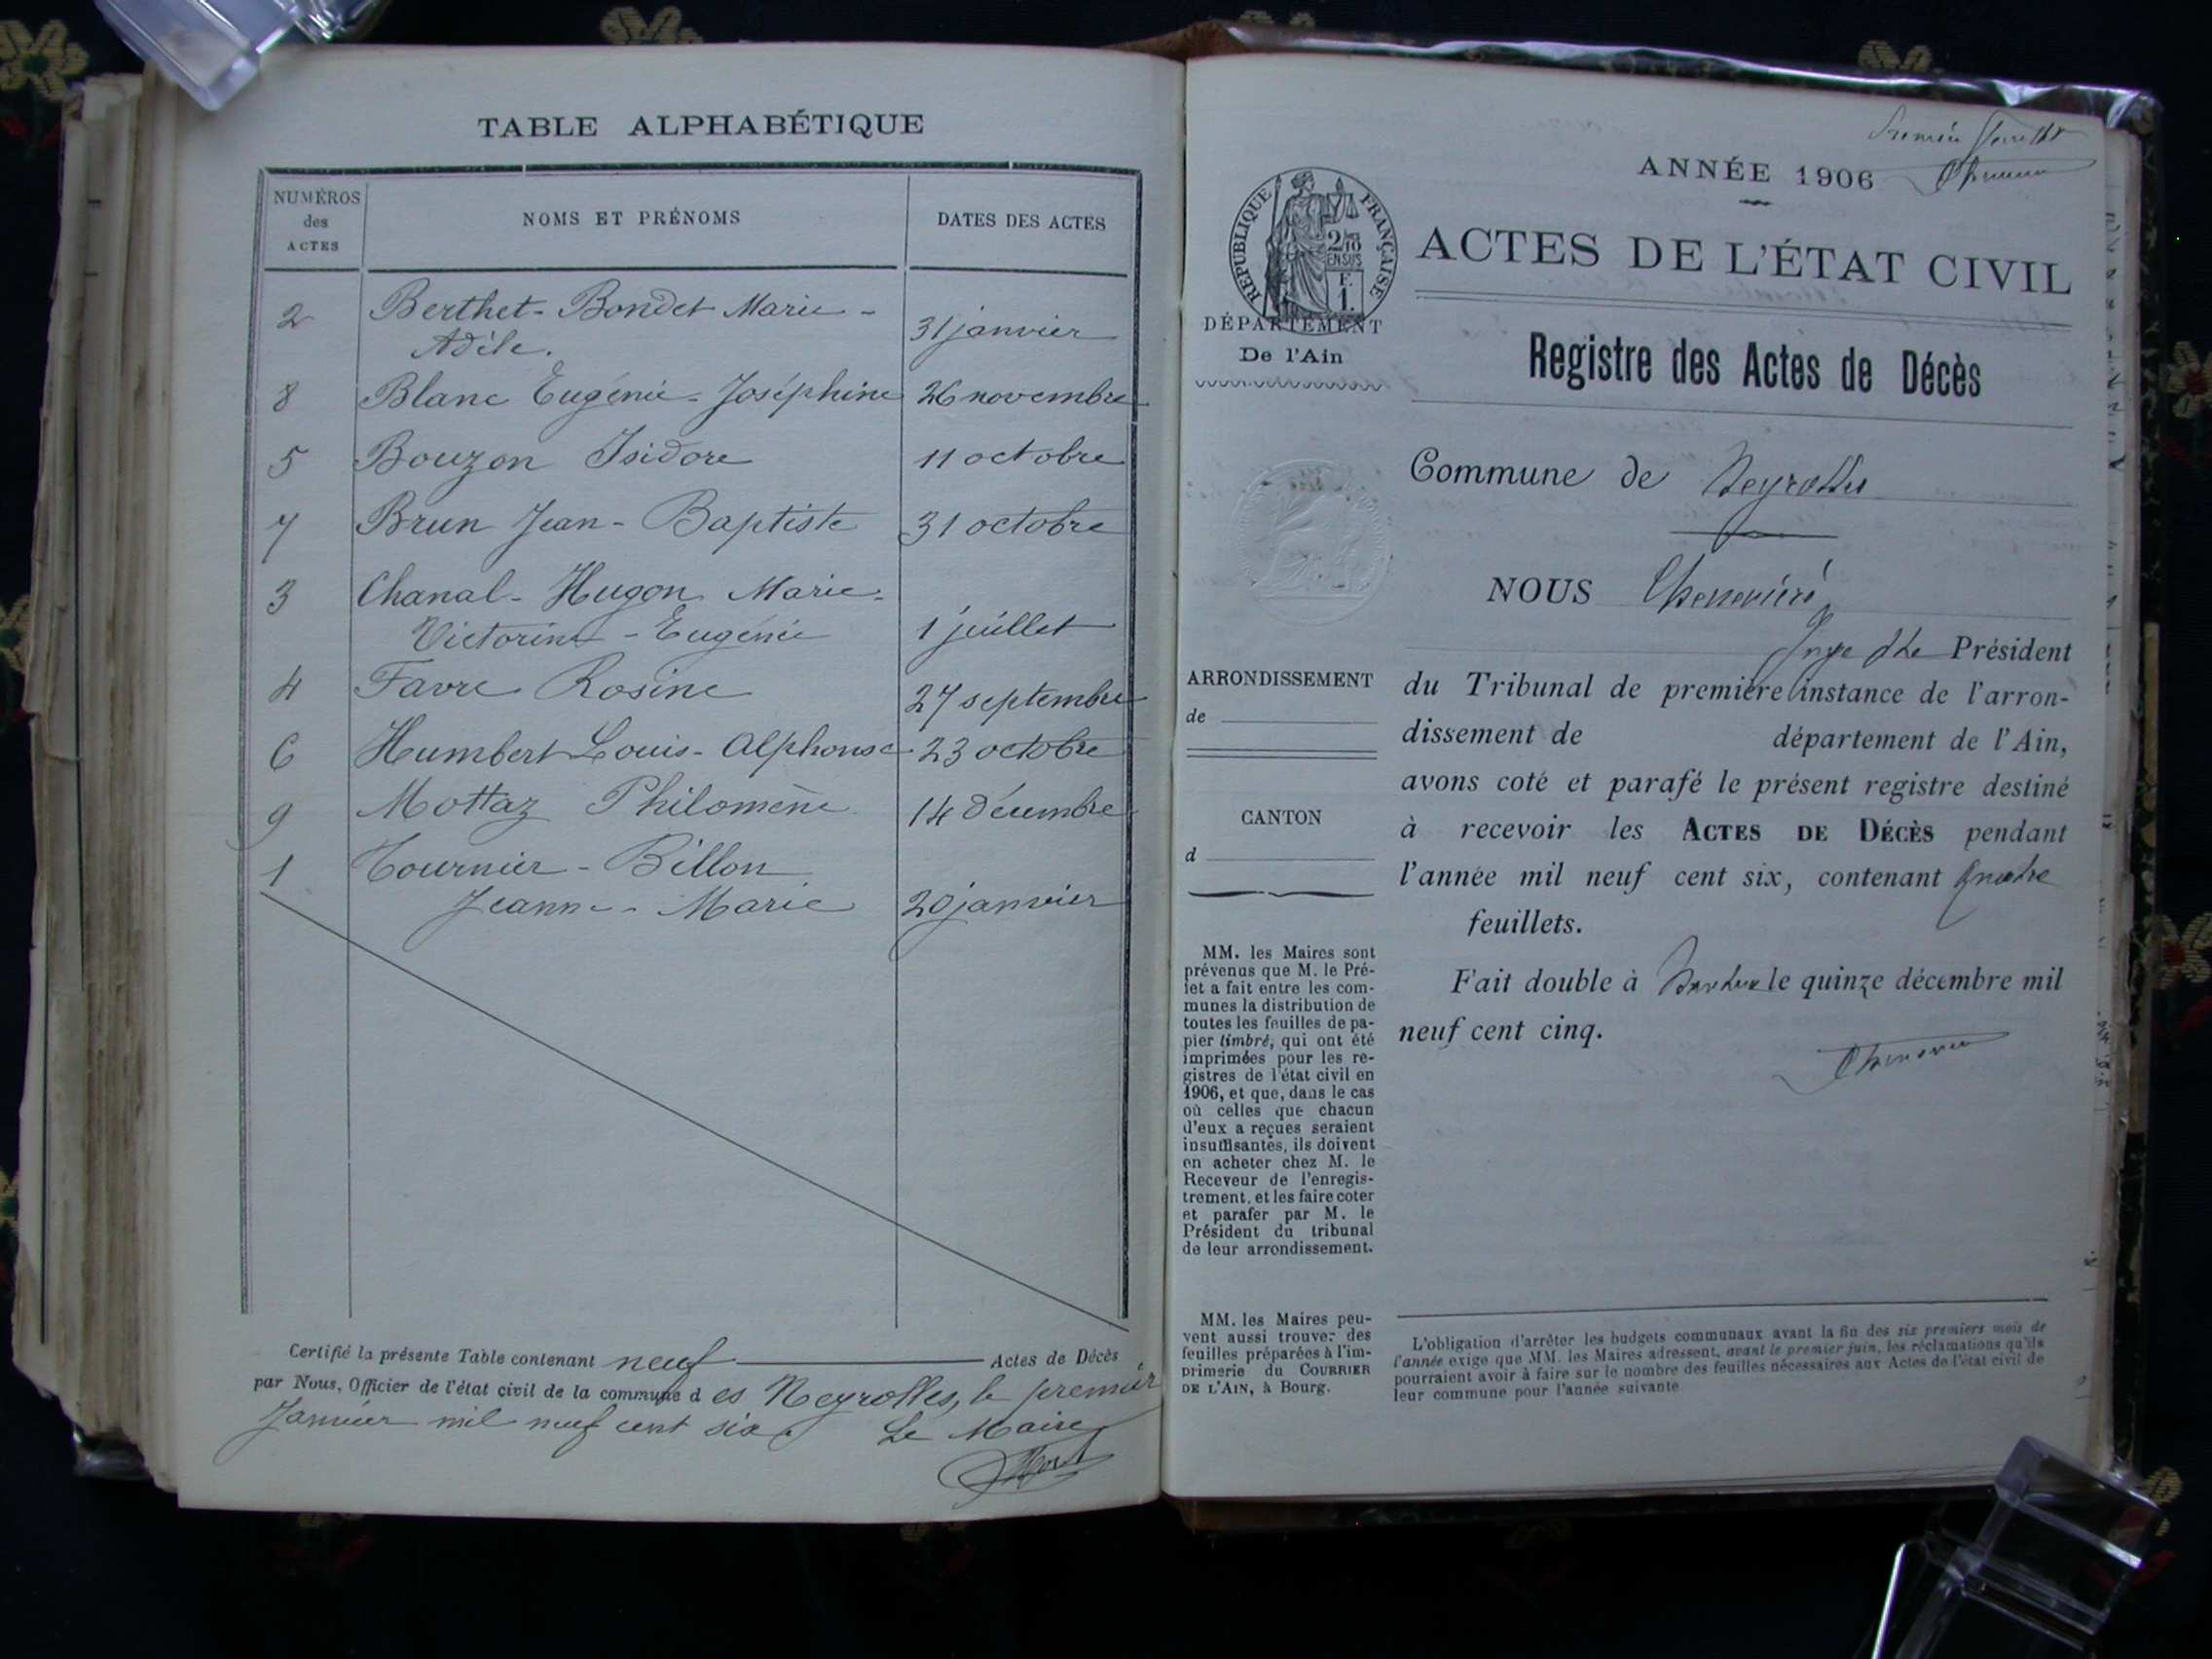 TABLE ALPHABÉTIQUE
NUMÉROS des ACTES
NOMS ET PRÉNOMS
DATES DES ACTES
2 Berthet-Bondet Marie-
Adèle. 31 janvier
8 Blanc Eugénie-Joséphine 26 novembre
5 Bouzon Isidore 11 octobre
7 Brun Jean-Baptiste 31 octobre
3 Chanal-Hugon Marie-
Victorine-Eugénie 1 juillet
4 Favre Rosine 27 septembre
6 Humbert Louis-Alphonse 23 octobre
9 Mottaz Philomène 14 décembre
1 Tournier-Billon
Jeanne-Marie 20 janvier
Certifié la présente Table contenant neuf Actes de Décès
par Nous, Officier de l'état civil de la commune d es Neyrolles, le premier
Janvier mil neuf cent six. Le Maire
Premier
ANNÉE 1906
RÉPUBLIQUE FRANÇAISE
2/10
EN SUS
F.
1.
ACTES DE L'ÉTAT CIVIL
DÉPARTEMENT
De l'Ain
Registre des Actes de Décès
Commune de Neyrolles
NOUS
Juge Président
ARRONDISSEMENT
de
CANTON
d
du Tribunal de première instance de l'arron-
dissement de département de l'Ain,
avons coté et parafé le présent registre destiné
à recevoir les ACTES DE DÉCÈS pendant
l'année mil neuf cent six, contenant quatre
feuillets.
Fait double à Nantua le quinze décembre mil
neuf cent cinq.
MM. les Maires sont
prévenus que M. le Pré-
fet a fait entre les com-
munes la distribution de
toutes les feuilles de pa-
pier timbré, qui ont été
imprimées pour les re-
gistres de l'état civil en
1906, et que, dans le cas
où celles que chacun
d'eux a reçues seraient
insuffisantes, ils doivent
en acheter chez M. le
Receveur de l'enregis-
trement, et les faire coter
et parafer par M. le
Président du tribunal
de leur arrondissement.
MM. les Maires peu-
vent aussi trouver des
feuilles préparées à l'im-
primerie du COURRIER
DE L'AIN, à Bourg.
L'obligation d'arrêter les budgets communaux avant la fin des six premiers mois de
l'année exige que MM. les Maires adressent, avant le premier juin, les réclamations qu'ils
pourraient avoir à faire sur le nombre des feuilles nécessaires aux Actes de l'état civil de
leur commune pour l'année suivante